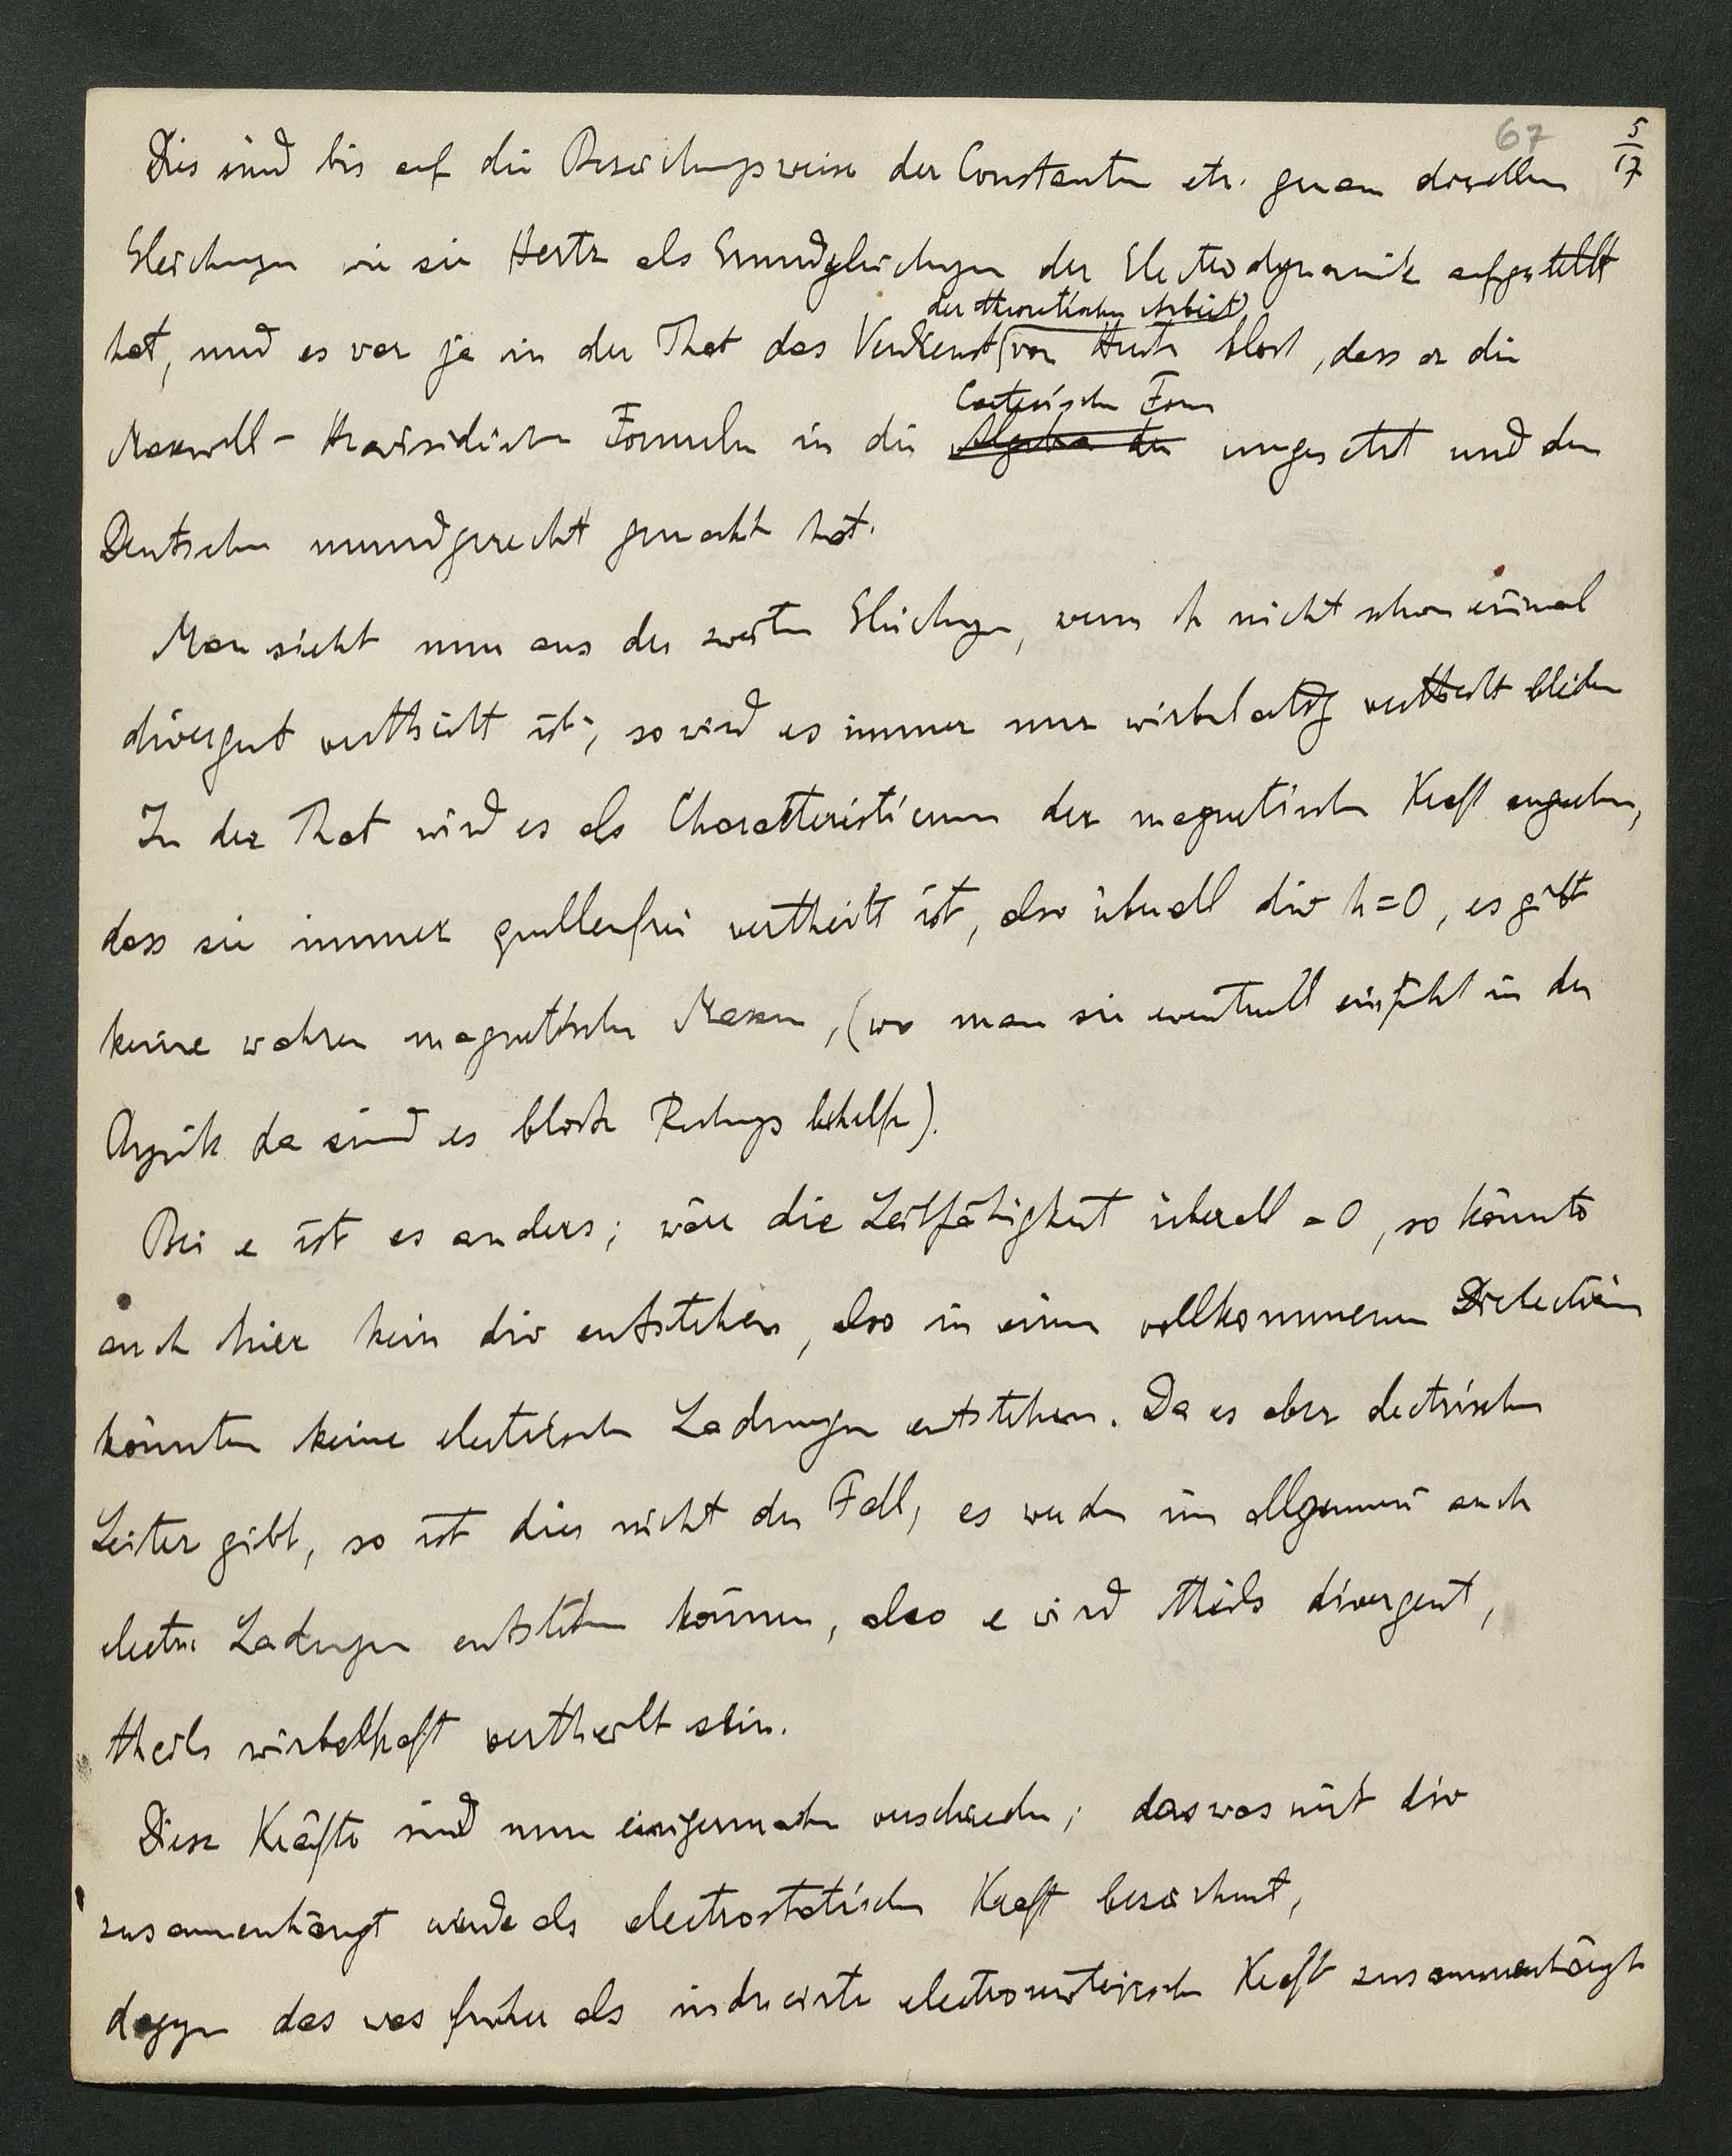 67
5/17
Dies sind bis auf die Bezeichnungsweise der Constanten etc. genau dieselben
Gleichungen wie sie Hertz als Grundgleichungen der Electrodynamik aufgestellt
der theoretischen Arbeit
hat, und es war ja in der That das Verdienst (von Hertz blos, dass er die
Cartesische Form
Maxwell-Heavisidischen Formeln in die Algebra der umgesetzt und den
Deutschen mundgerecht gemacht hat.
Man sieht nun aus der zweiten Gleichung, wenn h nicht schon einmal
divergent vertheilt ist, so wird es immer nur wirbelartig vertheilt bleiben
In der That wird es als Charakteristicum der magnetischen Kraft angesehen,
dass sie immer quellenfrei vertheilt ist, also überall div h=0, es gibt
keine wahren magnetischen Massen, (wo man sie eventuell einführt in der
Physik da sind es blosse Rechnungsbehelfe).
Bei e ist es anders; wäre die Leitfähigkeit überall =0, so könnte
auch hier kein div entstehen, also in einem vollkommenen Dielectricum
könnten keine electrischen Ladungen entstehen. Da es aber electrische
Leiter gibt, so ist dies nicht der Fall, es werden im allgemeinen auch
electr. Ladungen entstehen können, also e wird theils divergent,
theils wirbelhaft vertheilt sein.
Diese Kräfte sind nun einigermassen verschieden; das was mit div
zusammenhängt wurde als electrostatische Kraft bezeichnet,
dagegen das was früher als inducirte electromotorische Kraft zusammenhängt